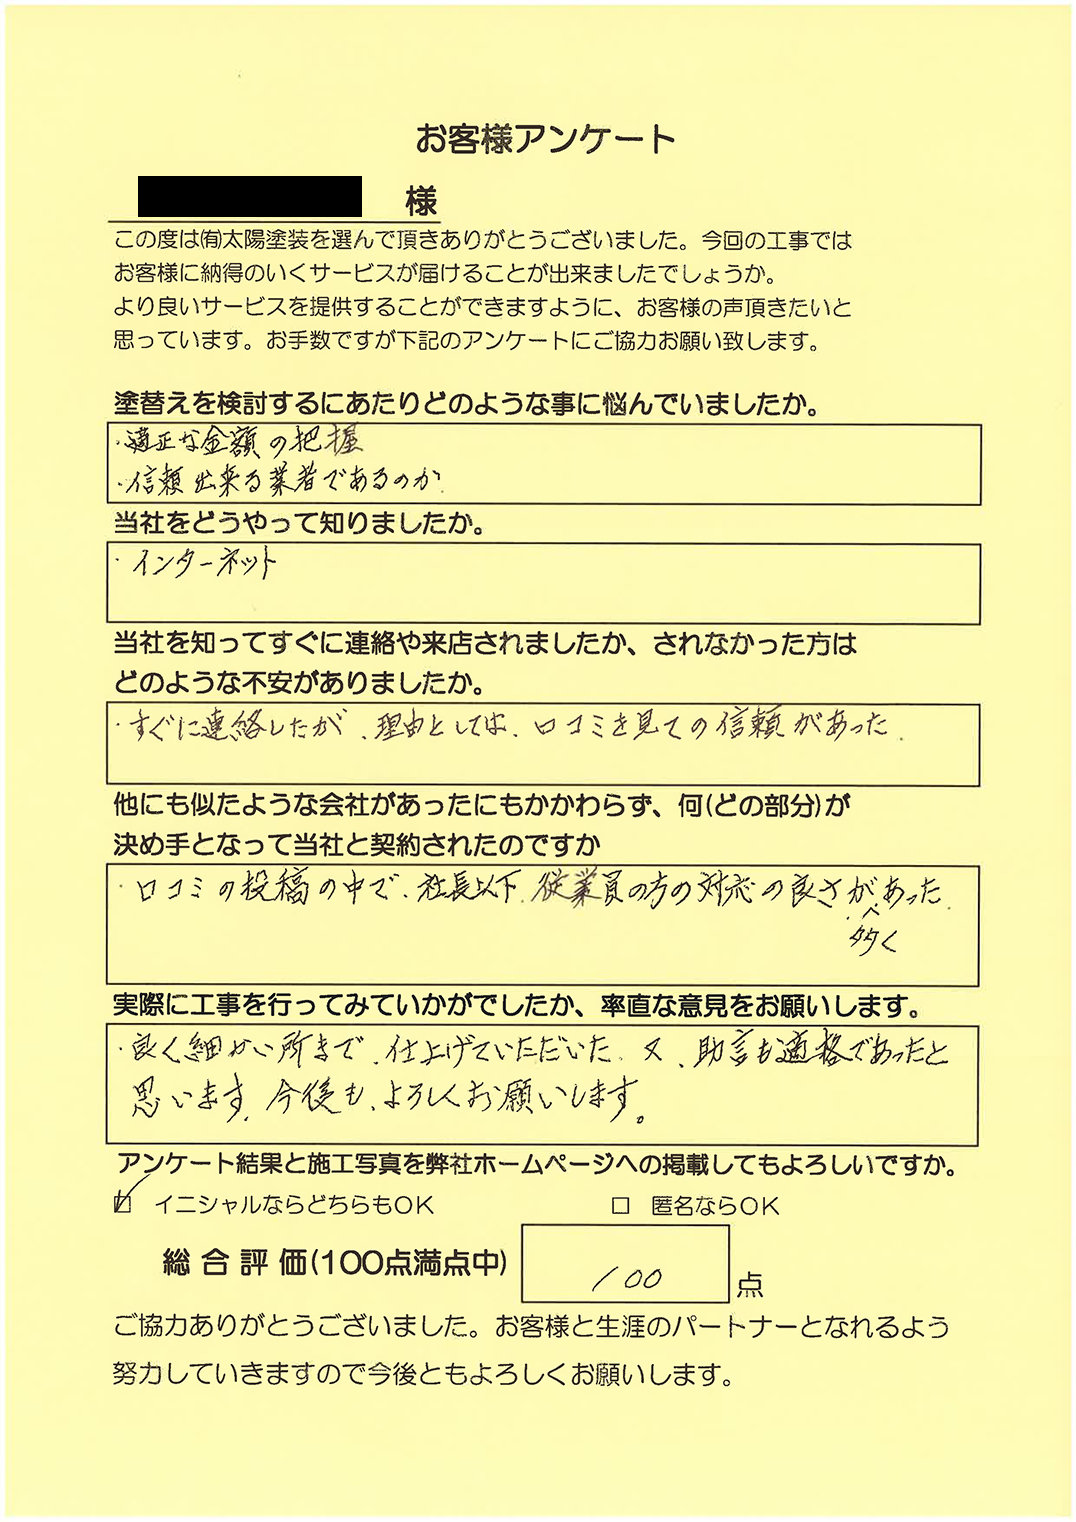 お客様アンケート
様
この度は㈲太陽塗装を選んで頂きありがとうございました。今回の工事では
お客様に納得のいくサービスが届けることが出来ましたでしょうか。
より良いサービスを提供することができますように、お客様の声頂きたいと
思っています。お手数ですが下記のアンケートにご協力お願い致します。
塗替えを検討するにあたりどのような事に悩んでいましたか。
・適正な金額の把握
・信頼出来る業者であるのか.
当社をどうやって知りましたか。
・インターネット
当社を知ってすぐに連絡や来店されましたか、されなかった方は
どのような不安がありましたか。
・すぐに連絡したが、理由としては、口コミを見ての信頼があった.
他にも似たような会社があったにもかかわらず、何(どの部分)が
決め手となって当社と契約されたのですか
・口コミの投稿の中で、社長以下、従業員の方の対応の良さが、あった.
多く
実際に工事を行ってみていかがでしたか、率直な意見をお願いします。
・良く細かい所まで、仕上げていただいた、又、助言も適格であったと
思います、今後も、よろしくお願いします。
アンケート結果と施工写真を弊社ホームページへの掲載してもよろしいですか。
☑ イニシャルならどちらもOK □ 匿名ならOK
総合評価(100点満点中) 100 点
ご協力ありがとうございました。お客様と生涯のパートナーとなれるよう
努力していきますので今後ともよろしくお願いします。